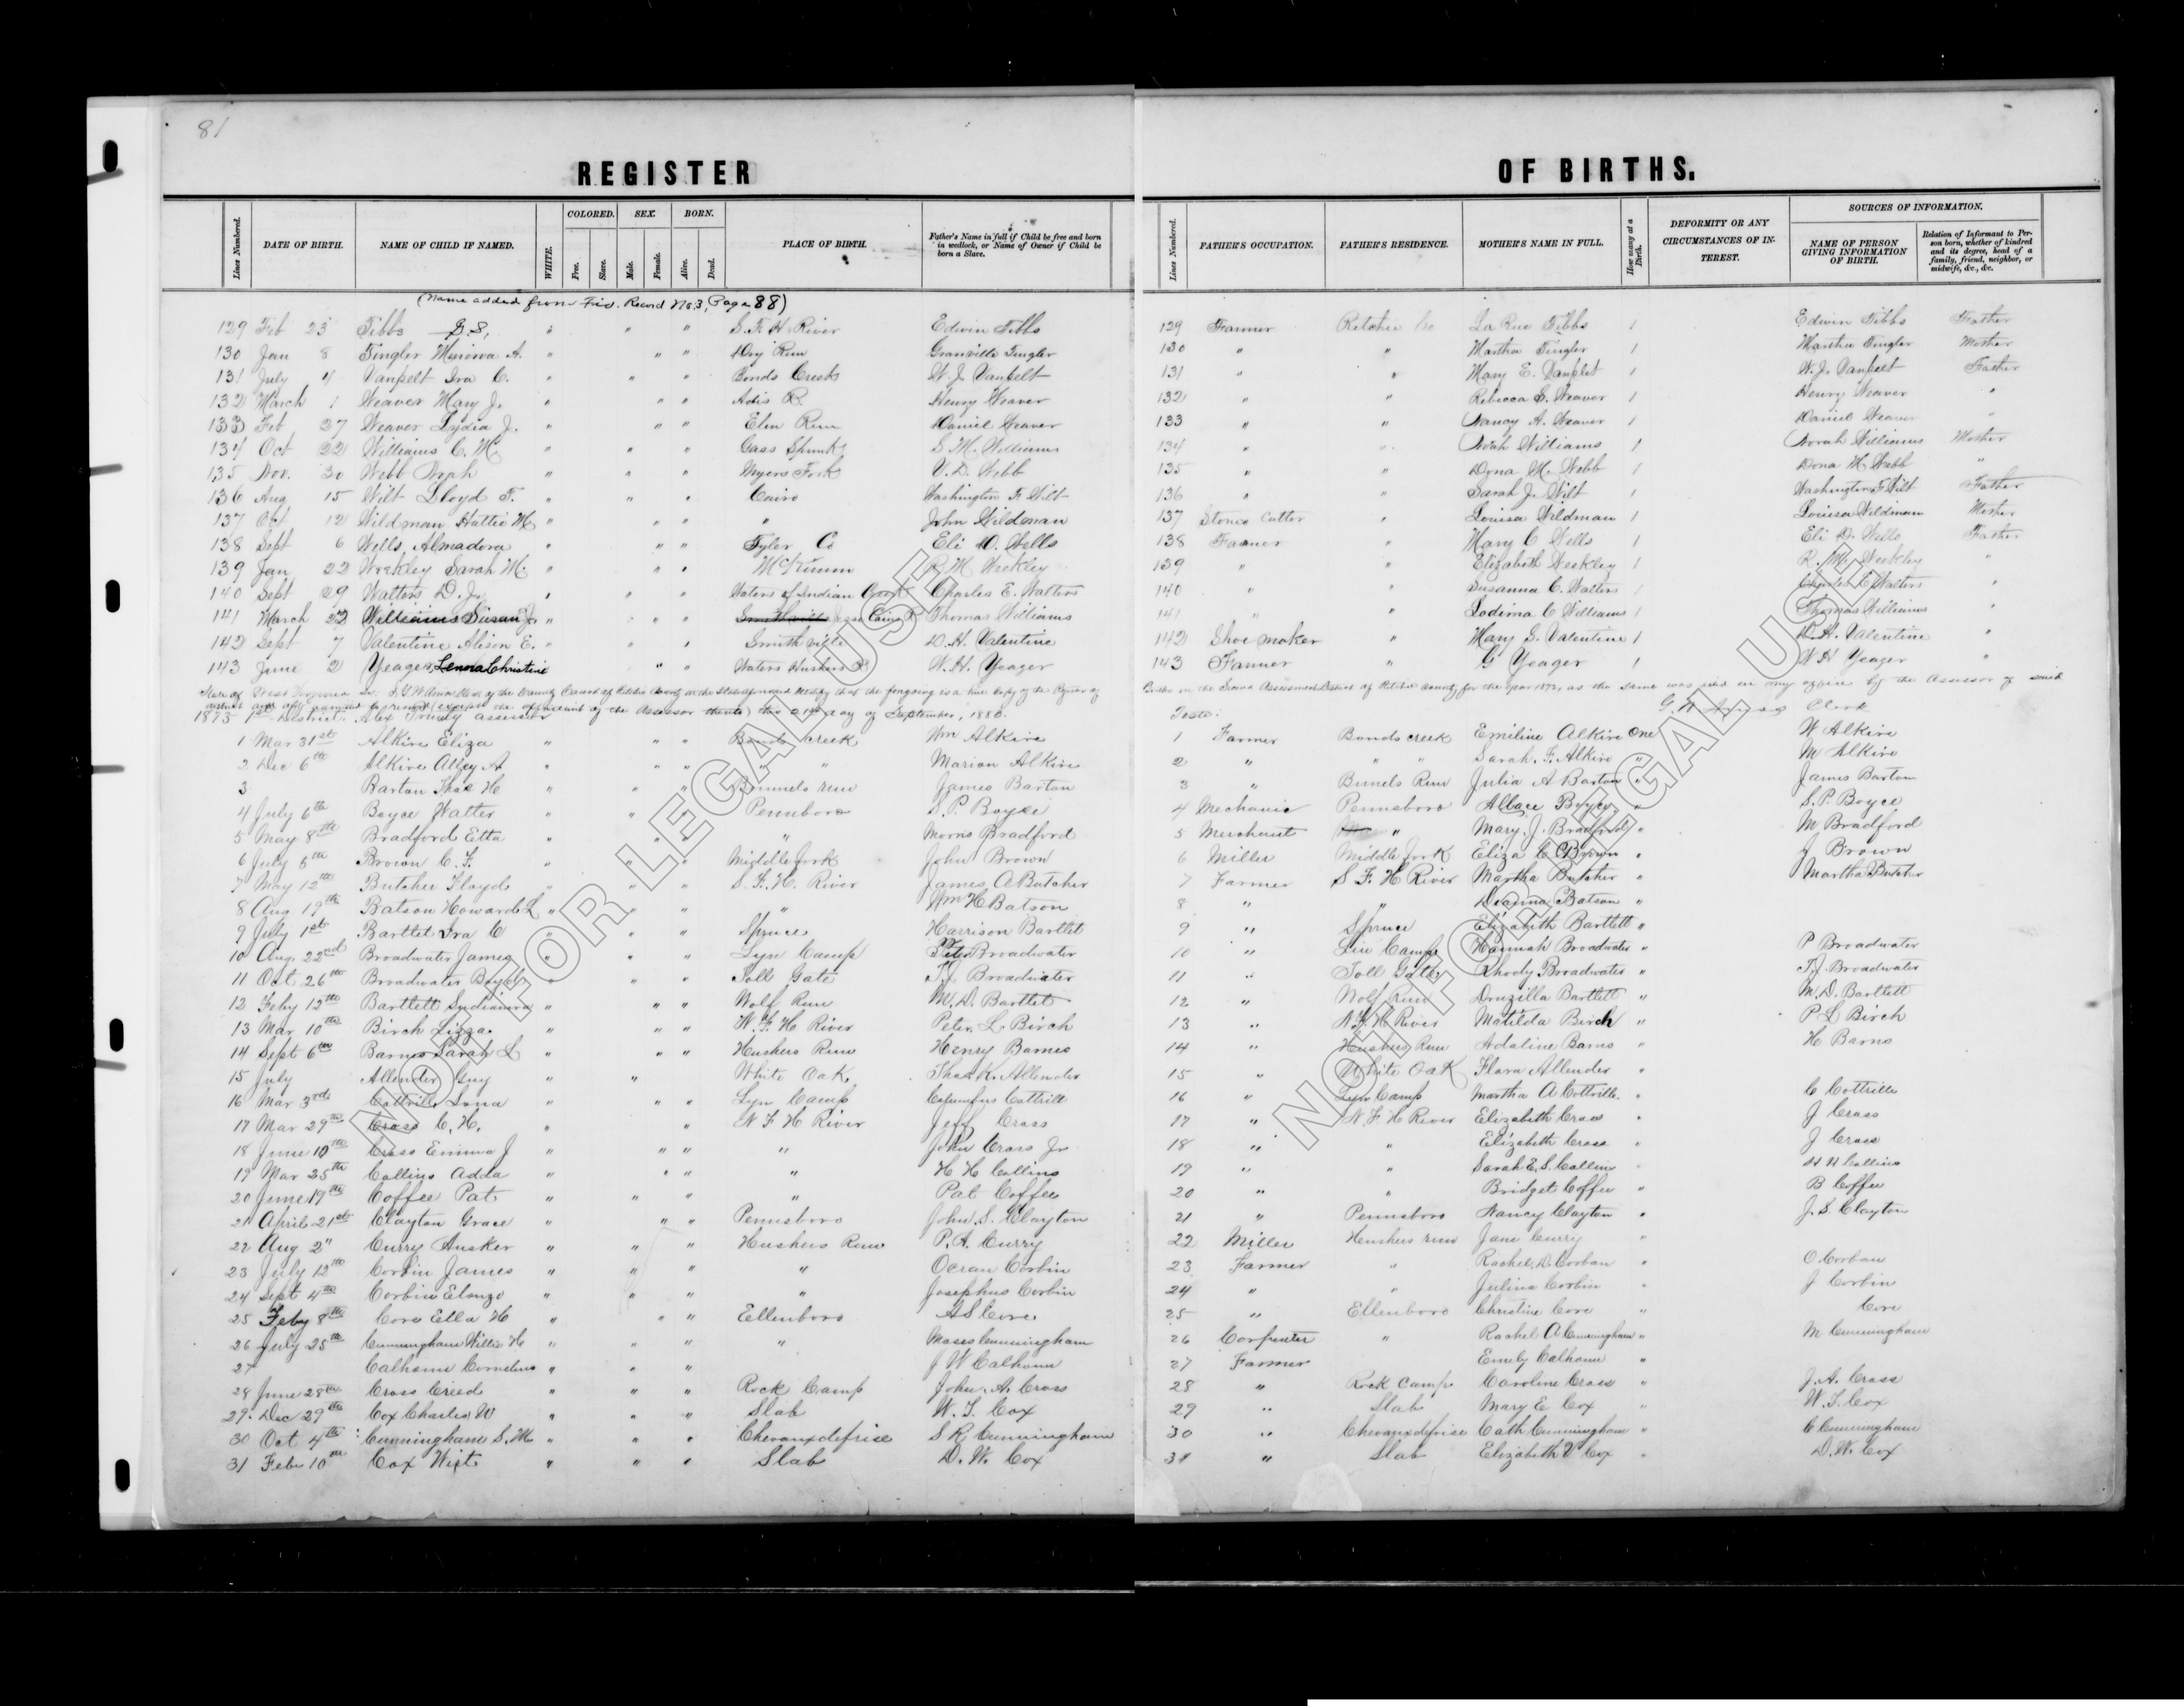 81
REGISTER OF BIRTHS.
Lines Numbered. DATE OF BIRTH. NAME OF CHILD IF NAMED. WHITE. COLORED. Free. Slave. SEX. Male. Female. BORN. Alive. Dead. PLACE OF BIRTH. Father's Name in full if Child be free and born in wedlock, or Name of Owner if Child be born a Slave. Lines Numbered. FATHER'S OCCUPATION. FATHER'S RESIDENCE. MOTHER'S NAME IN FULL. How many at a Birth. DEFORMITY OR ANY CIRCUMSTANCES OF INTEREST. SOURCES OF INFORMATION. NAME OF PERSON GIVING INFORMATION OF BIRTH. Relation of Informant to Person born, whether of kindred and its degree, head of a family, friend, neighbor, or midwife, &c., &c.
(Name added from Fid. Record No. 3, Page 88)
129 Feb 23 Tibbs " " " S. F. H. River Edwin Tibbs 129 Farmer Ritchie Co La Rue Tibbs 1 Edwin Tibbs Father
130 Jan 8 Tingler Minerva A. " " " Dry Run Granville Tingler 130 " " Martha Tingler 1 Martha Tingler Mother
131 July 4 Vanpelt Ira C. " " " Bonds Creek W. J. Vanpelt 131 " " Mary E. Vanplet 1 W. J. Vanpelt Father
132 March 1 Weaver Mary J. " " " Henry Weaver 132 " " Rebecca Weaver 1 Henry Weaver "
133 Feb 27 Weaver Lydia J. " " " Elm Run Daniel Weaver 133 " " Nancy A. Weaver 1 Daniel Weaver "
134 Oct 22 Williams C. M. " " " S. M. Williams 134 " " Norah Williams 1 Norah Williams Mother
135 Nov. 30 Webb " " " Myers Fork V. D. Webb 135 " " Dona M. Webb 1 Dona M Webb "
136 Aug 15 Wilt Lloyd F. " " " Cairo Washington F. Wilt 136 " " Sarah J. Wilt 1 Washington F Wilt Father
137 Oct 12 Wildman Hattie M " " " " John Wildman 137 Stone Cutter " Louisa Wildman 1 Louisa Wildman Mother
138 Sept 6 Wells, Almadora " " " Tyler Co Eli D. Wells 138 Farmer " Mary C Wells 1 Eli D. Wells Father
139 Jan 22 Weekley Sarah M. " " " McKimm R M Weekley 139 " " Elizabeth Weekley 1 R. M. Weekley "
140 Sept 29 Watters D. Jr. " " " Waters of Indian Creek Charles E. Watters 140 " " Susanna C. Watters 1 Charles E Watters "
141 March 23 Williams Susan J. " " " Thomas Williams 141 " " Lodima C Williams 1 Thomas Williams "
142 Sept 7 Valentine Alison E. " " " Smithville D. H. Valentine 142 Shoe maker " Mary S. Valentine 1 D. H. Valentine "
143 June 2 Yeager, Lenna Christine " " " Waters Huskers R W. H. Yeager 143 Farmer " G Yeager 1 W H Yeager "
State of West Virginia Sc: I, G W Amos Clerk of the County Court of Ritchie County in the State aforesaid certify that the foregoing is a true Copy of the Register of Births in the Second Assessment District of Ritchie County for the year 1872, as the same was filed in my office by the Assessor of said
district and admitted to record (except the affidavit of the Assessor thereto) this 21st day of September, 1880. Teste: G. W Amos Clerk
1873 1st District. Alex Prunty assessor
1 Mar 31st Alkire Eliza " " " Bonds creek Wm Alkire 1 Farmer Bonds creek Emiline Alkire One W Alkire
2 Dec 6th Alkire Alley A " " " " " Marion Alkire 2 " " " Sarah. F. Alkire " M Alkire
3 Barton Thos H " " " Bunnels run James Barton 3 " Bunels Run Julia A Barton " James Barton
4 July 6th Boyce Walter " " " Pennboro S. P. Boyce 4 Mechanic Pennsboro Allace Boyce " S. P. Boyce
5 May 8th Bradford Etta " " " Morris Bradford 5 Merchant " Mary. J. Bradford " M Bradford
6 July 5th Brown C. F. " " " Middle fork John Brown 6 Miller Middle fork Eliza C Brown " J Brown
7 May 12th Butcher Floyd " " " S. F. H. River James A Butcher 7 Farmer S F H River Martha Butcher " Martha Butcher
8 Aug 19th Batson Howard L " " " " Wm H Batson 8 " " Dianna Batson "
9 July 1st Bartlet Ira C " " " Spruce Harrison Bartlet 9 " Spruce Elizabeth Bartlett "
10 Aug. 22nd Broadwater James " " " Lyn Camp Peter Broadwater 10 " Lin Camp Hannah Broadwater " P Broadwater
11 Oct 26th Broadwater Boyd " " " Toll Gate T J Broadwater 11 " Toll Gate Rhody Broadwater " T J Broadwater
12 Feby 12th Bartlett " " " Wolf Run M. D. Bartlet 12 " Wolf Run Druzilla Bartlett " M. D. Bartlett
13 Mar 10th Birch Lizza " " " N. F. H River Peter. L. Birch 13 " N F H River Matilda Birch " P L Birch
14 Sept 6th Barnes Sarah L " " " Hushers Run Henry Barnes 14 " Hushers Run Adaline Barns " H Barns
15 July Allender Guy " " White Oak Thos K. Allender 15 " White Oak Flora Allender "
16 Mar 3rd Cottrille Lona " " " Lyn Camp Columbus Cottrill 16 " Lyn Camp Martha A Cottrille " C Cottrille
17 Mar 29th Cross C. H. " " N F H River Jeff Cross 17 " N. F. H River Elizabeth Cross " J Cross
18 June 10th Cross Emma J " " " " John Cross Jr 18 " " Elizabeth Cross " J Cross
19 Mar 25th Collins Adda " " " " H H Collins 19 " " Sarah E. S. Collins " H H Collins
20 June 19th Coffee Pat " " " " Pat Coffee 20 " " Bridget Coffee " B Coffee
21 April 21st Clayton Grace " " " Pennsboro John. S. Clayton 21 " Pennsboro Nancy Clayton " J. S. Clayton
22 Aug 2" Curry Husker " " " Hushers Run P. A. Curry 22 Miller Hushers run Jane Curry "
23 July 12th Corbin James " " " " Ocran Corbin 23 Farmer " Rachel. D. Corban " O Corban
24 Sept 4th Corbin Elonzo " " " " Josephus Corbin 24 " " Julina Corbin " J Corbin
25 Feby 8th Core Ella H " " " Ellenboro A S Core 25 " Ellenboro Christine Core " Core
26 July 25th Cunningham Willie H " " " " Moses Cunningham 26 Carpenter " Rachel A Cunningham " M Cunningham
27 Calhoun Cornelius " " " J W Calhoun 27 Farmer Emily Calhoun "
28 June 28th Cross Creed " " " Rock Camp John. A. Cross 28 " Rock Camp Caroline Cross " J. A. Cross
29 Dec 29th Cox Charles W " " " Slab W. T. Cox 29 " Slab Mary E Cox " W. T. Cox
30 Oct 4th Cunningham S. M. " " " Chevauxdefrise S R Cunningham 30 " Chevauxdefrise Cath Cunningham " C Cunningham
31 Feby 10th Cox Wirt " " " Slab D. W. Cox 31 " Slab Elizabeth V Cox " D. W. Cox
NOT FOR LEGAL USE
NOT FOR LEGAL USE